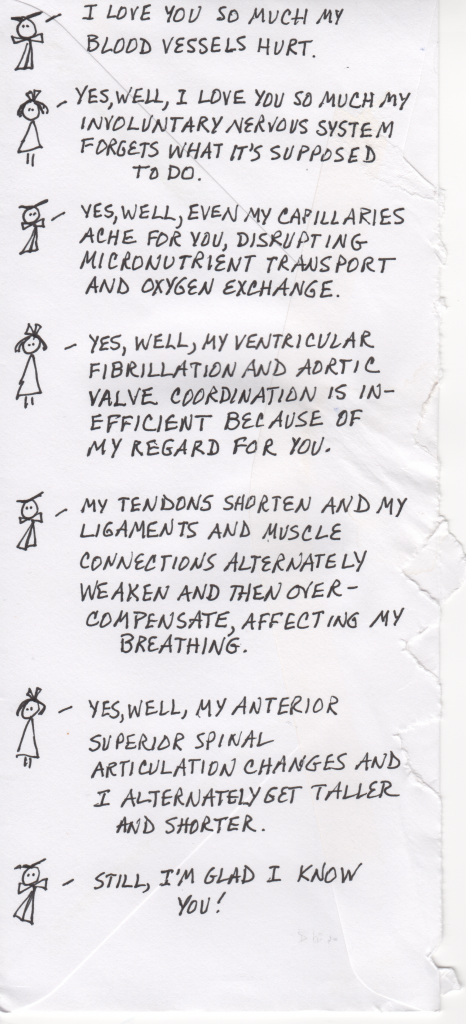 I LOVE YOU SO MUCH MY
BLOOD VESSELS HURT.
YES, WELL, I LOVE YOU SO MUCH MY
INVOLUNTARY NERVOUS SYSTEM
FORGETS WHAT IT'S SUPPOSED
TO DO.
YES, WELL, EVEN MY CAPILLARIES
ACHE FOR YOU, DISRUPTING
MICRONUTRIENT TRANSPORT
AND OXYGEN EXCHANGE.
YES, WELL, MY VENTRICULAR
FIBRILLATION AND AORTIC
VALVE COORDINATION IS IN-
EFFICIENT BECAUSE OF
MY REGARD FOR YOU.
MY TENDONS SHORTEN AND MY
LIGAMENTS AND MUSCLE
CONNECTIONS ALTERNATELY
WEAKEN AND THEN OVER-
COMPENSATE, AFFECTING MY
BREATHING.
YES, WELL, MY ANTERIOR
SUPERIOR SPINAL
ARTICULATION CHANGES AND
I ALTERNATELY GET TALLER
AND SHORTER.
STILL, I'M GLAD I KNOW
YOU!